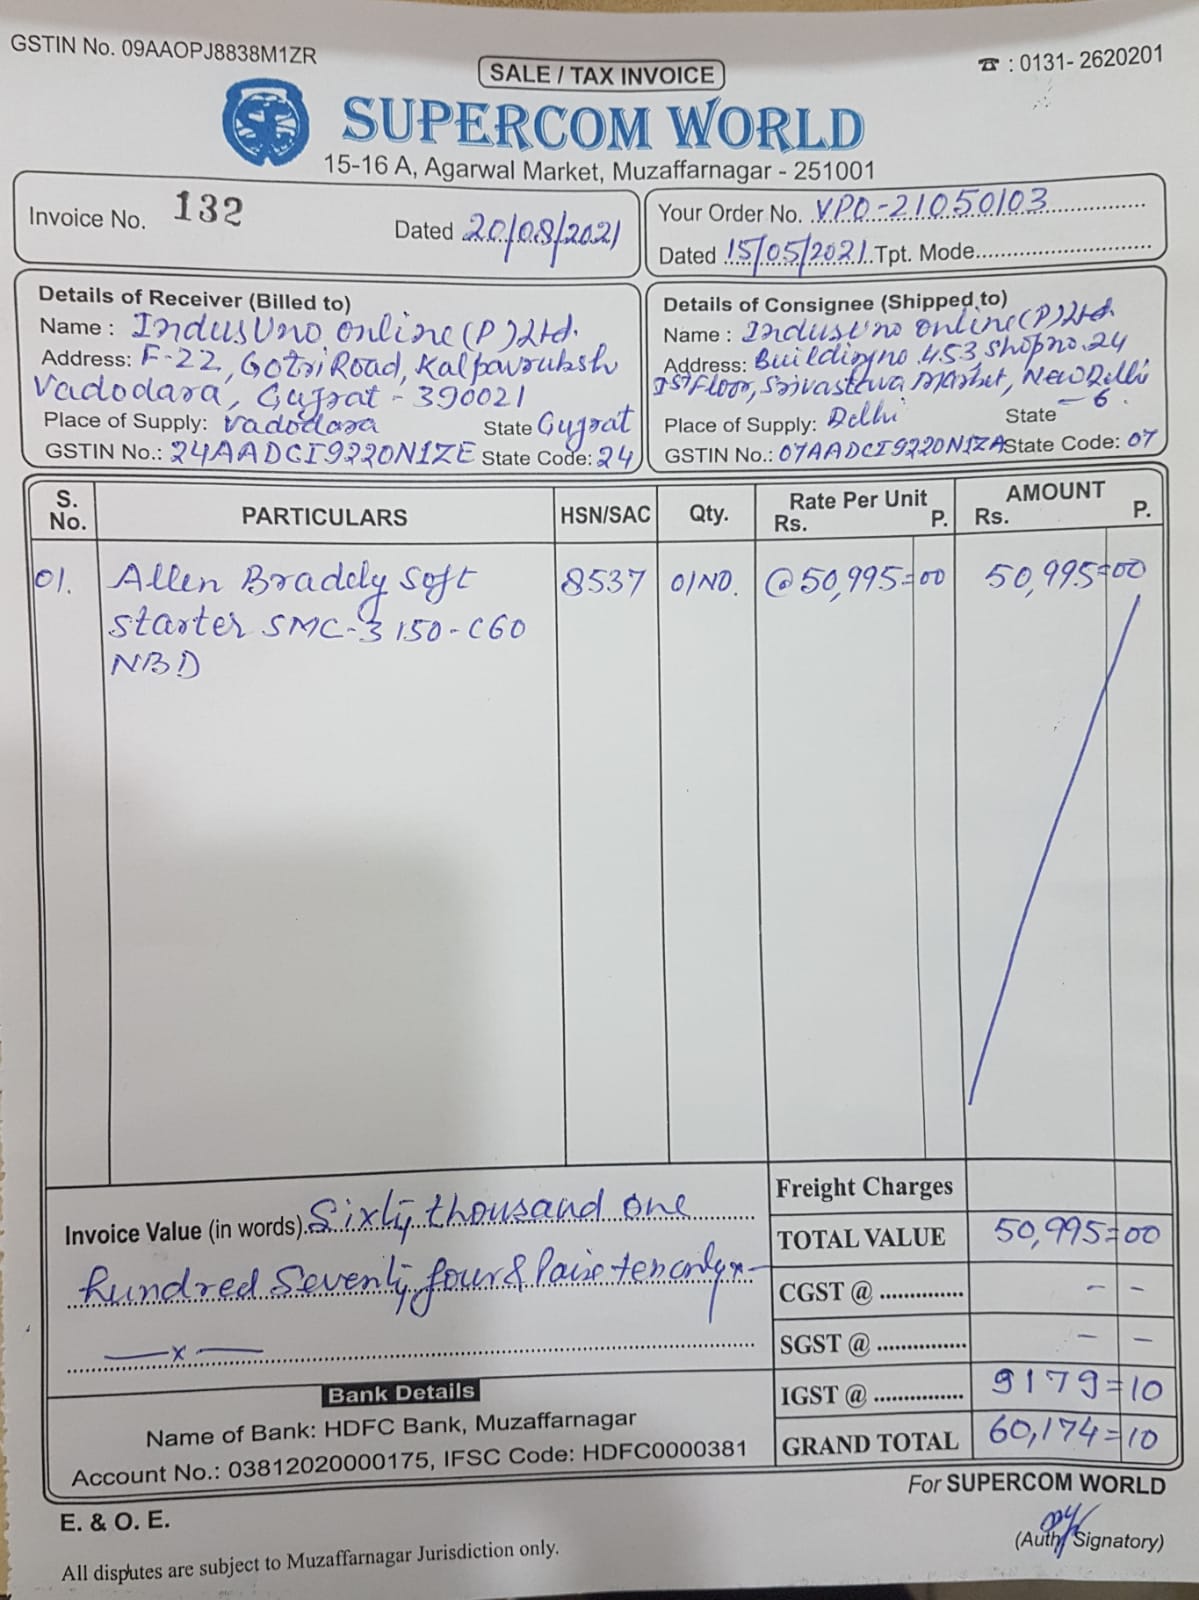 GSTIN No. 09AAOPJ8838M1ZR
☎ : 0131- 2620201
SALE / TAX INVOICE
SUPERCOM WORLD
15-16 A, Agarwal Market, Muzaffarnagar - 251001
Invoice No. 132
Dated 20/08/2021
Your Order No. VPO-21050103
Dated 15/05/2021 Tpt. Mode
Details of Receiver (Billed to)
Name : IndusUno online (P) Ltd.
Address: F-22, Gotri Road, Kalpavruksh
Vadodara, Gujrat - 390021
Place of Supply: Vadodara State Gujrat
GSTIN No.: 24AADCI9220N1ZE State Code: 24
Details of Consignee (Shipped to)
Name : IndusUno online (P) Ltd.
Address: Building no. 453, Shop no. 24
Ist Floor, Srivasthva Market, New Delhi
Place of Supply: Delhi State - 6.
GSTIN No.: 07AADCI9220N1ZA State Code: 07
S. No. PARTICULARS HSN/SAC Qty. Rate Per Unit Rs. P. AMOUNT Rs. P.
01. Allen Bradely Soft 8537 01NO. @50,995=00 50,995=00
Starter SMC-3 150-C60
NBD
Freight Charges
Invoice Value (in words) Sixty thousand one
TOTAL VALUE 50,995=00
hundred Seventy four & Paise ten only x-
CGST @ - -
SGST @ - -
—x—
Bank Details
IGST @ 9179=10
Name of Bank: HDFC Bank, Muzaffarnagar
GRAND TOTAL 60,174=10
Account No.: 03812020000175, IFSC Code: HDFC0000381
For SUPERCOM WORLD
E. & O. E.
(Auth. Signatory)
All disputes are subject to Muzaffarnagar Jurisdiction only.